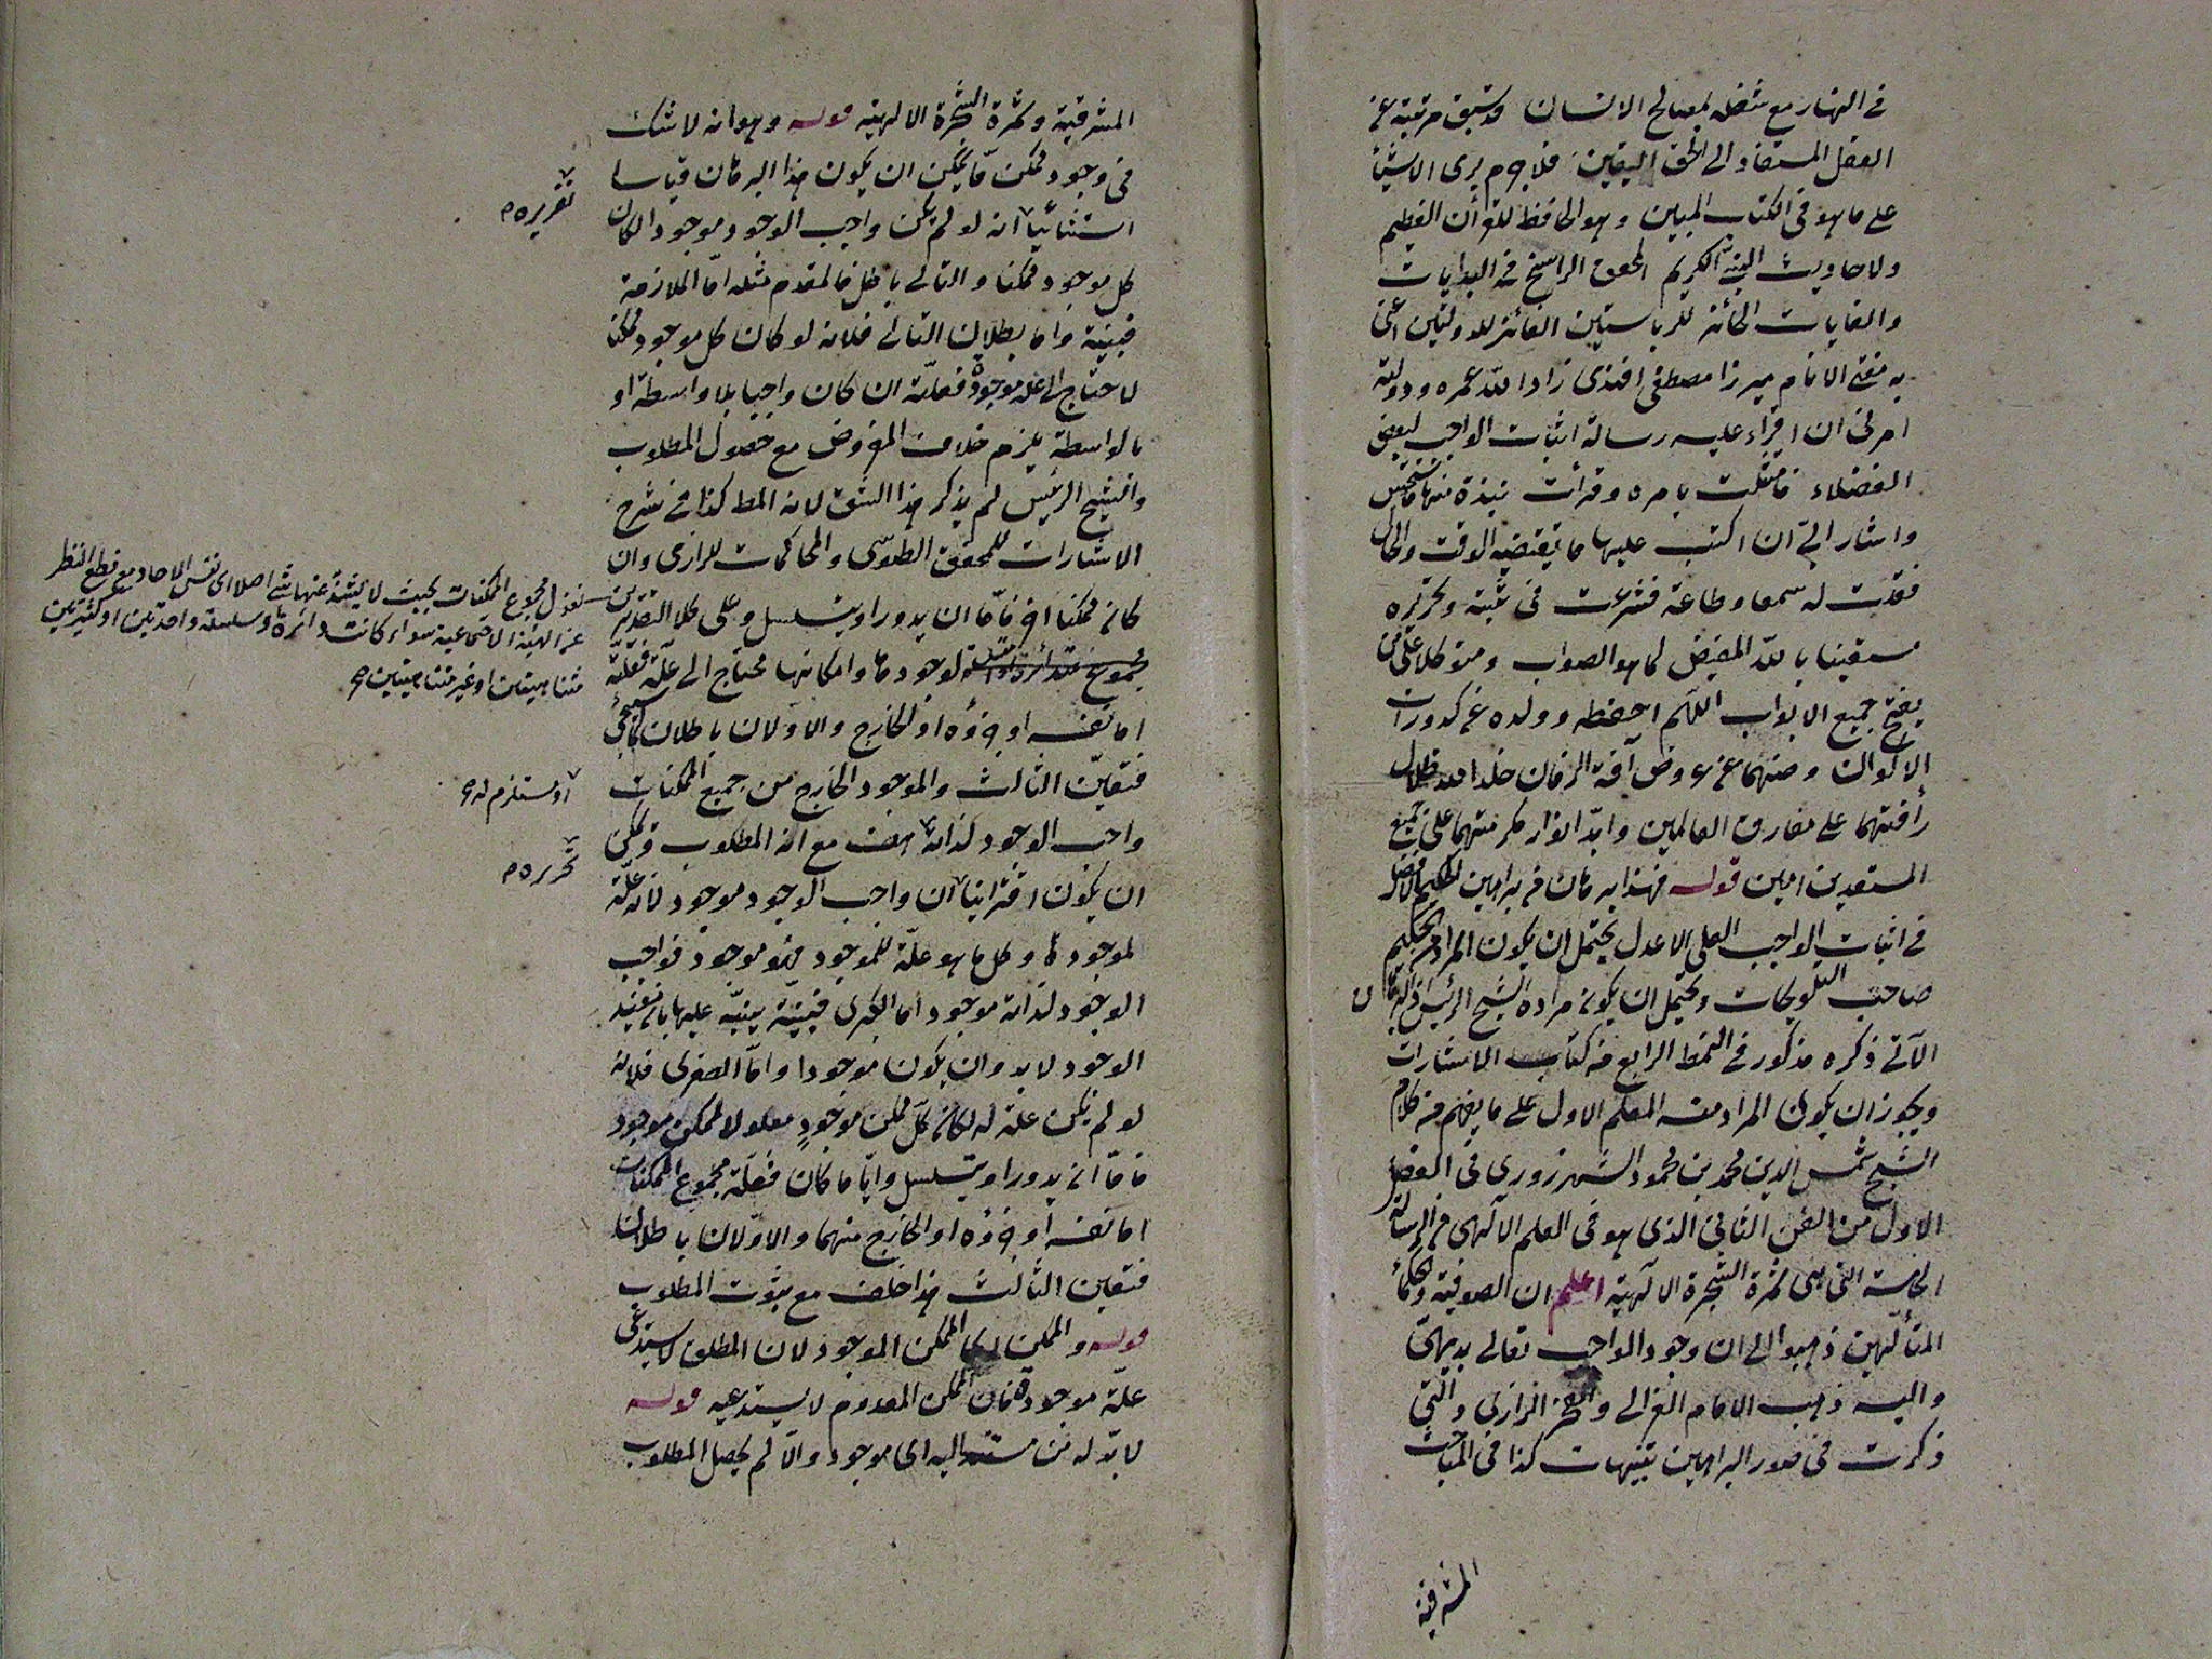 في النهار مع شغله لمصالح الانسان وسبق مرتبته عن
العقل المستفاد الى الحق اليقين فلا جرم يرى الاشياء
على ما هو في الكتاب المبين وهو الحافظ للقرآن العظيم
ولاحاديث النبي الكريم المحقق الراسخ في البدايات
والغايات الحائز للرياستين الفائز للدولتين اعني
به مفتي الانام ميرزا مصطفى افندي زاد الله عمره ودولته
امرني ان اقراء عليه رسالة اثبات الواجب لبعض
الفضلاء فامتثلت بامره وقرأت نبذة منها
واشار الي ان اكتب عليها ما يقتضيه الوقت والحال
فقلت له سمعا وطاعة فشرعت في ثبته وتحريره
مستعينا بالله المفيض لما هو الصواب ومتوكلا على من
يفتح جميع الابواب اللهم احفظه وولده عن كدورات
الاكوان وصنهما عن عروض آفة الزمان خلد الله ظلال
رأفتهما على مفارق العالمين وابد انوار مكرمتهما على جميع
المستعدين امين قوله فهذا برهان من براهين الحكيم الافضل
في اثبات الواجب العلي الاعدل يحتمل ان يكون المراد من الحكيم
صاحب التلويحات ويحتمل ان يكون مراده الشيخ الرئيس فالبرهان
الآتي ذكره مذكور في النمط الرابع من كتاب الاشارات
ويجوز ان يكون المراد منه المعلم الاول على ما يفهم من كلام
الشيخ شمس الدين محمد بن محمود الشهرزوري في الفصل
الاول من الفن الثاني الذي هو في العلم الآلهي من الرسالة
الخامسة التي هي ثمرة الشجرة الآلهية اعلم ان الصوفية والحكماء
المتألهين ذهبوا الى ان وجود الواجب تعالى بديهي
واليه ذهب الامام الغزالي والفخر الرازي والتي
ذكرت في صور البراهين تنبيهات كذا في المباحث
المشرقية
المشرقية وثمرة الشجرة الالهية قوله وهو انه لا شك
في وجود ممكن ما يمكن ان يكون هذا البرهان قياسا
استثنائيا انه لو لم يكن واجب الوجود موجودا لكان
كل موجود ممكنا والتالي باطل فالمقدم مثله اما الملازمة
فبينة واما بطلان التالي فلانه لو كان كل موجود ممكنا
لاحتاج الى علة موجودة فعلته ان كان واجبا بلا واسطة او
بالواسطة يلزم خلاف المفروض مع حصول المطلوب
والشيخ الرئيس لم يذكر هذا الشق لانه المط كذا في شرح
الاشارات للمحقق الطوسي والمحاكمات للرازي وان
كان ممكنا اخر فاما ان يدور او يتسلسل وعلى كلا التقديرين
لوجودها وامكانها محتاج الى علة فعلته
اما نفسه او جزؤه او الخارج والاولان باطلان كما سيجئ
فتعين الثالث والموجود الخارج من جميع الممكنات
واجب الوجود لذاته هف مع انه المطلوب ويمكن
ان يكون اقترانيا ان واجب الوجود موجود لانه علة
لموجود ما وكل ما هو علة للموجود فهو موجود فواجب
الوجود لذاته موجود اما الكبرى فبينة ينبه عليها بان مفيد
الوجود لا بد وان يكون موجودا واما الصغرى فلانه
لو لم يكن علة له لكان كل ممكن موجود معلولا لممكن موجود
فاما ان يدور او يتسلسل وايا ما كان فعلة مجموع الممكنات
اما نفسه او جزؤه او الخارج منهما والاولان باطلان
فتعين الثالث هذا خلف مع ثبوت المطلوب
قوله والممكن اى الممكن الموجود لان المطلق لا يستدعى
علة موجودة فان الممكن المعدوم لا يستدعيه قوله
لا بد له من مستند اليه اى موجود والا لم يحصل المطلوب
تقريره م
نقول مجموع الممكنات بحيث لا يشذ عنها شئ اصلا اى نفس الاحاد مع قطع النظر
عن الهيئة الاجتماعية سواء كانت دائرة او سلسلة واحدتين او كثيرتين
متناهيتين او غير متناهيتين
او مستلزم له
تحريره م